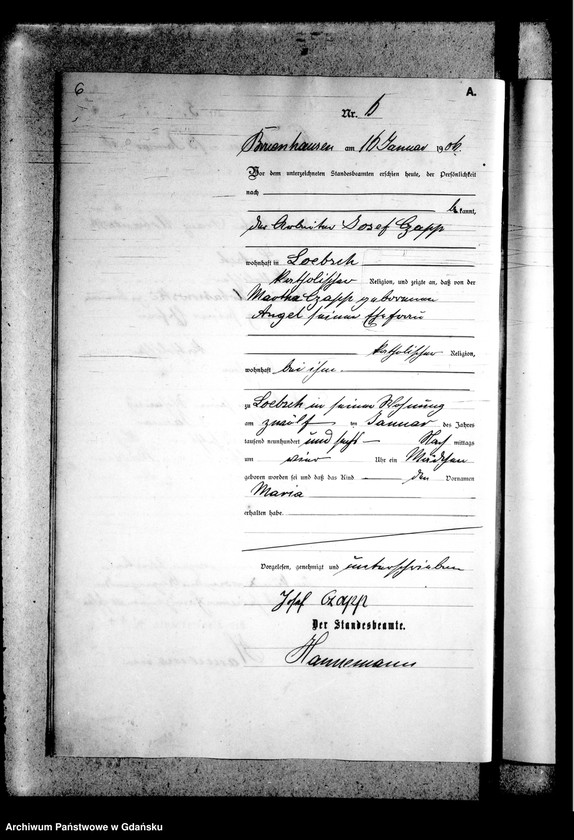 6
A.
Nr. 6
am 16 Januar 1906.
Vor dem unterzeichneten Standesbeamten erschien heute, der Persönlichkeit
nach
bekannt,
der Arbeiter Josef Czapp
wohnhaft in Loebsch
katholischer Religion, und zeigte an, daß von der
Martha Czapp geborenen
Angel seiner Ehefrau
katholischer Religion,
wohnhaft bei ihm
zu Loebsch in seiner Wohnung
am zwölf ten Januar des Jahres
tausend neunhundert und sechs Nach mittags
um Uhr ein Mädchen
geboren worden sei und daß das Kind den Vornamen
Maria
erhalten habe.
Vorgelesen, genehmigt und unterschrieben
Josef Czapp
Der Standesbeamte.
Hannemann
Archiwum Państwowe w Gdańsku